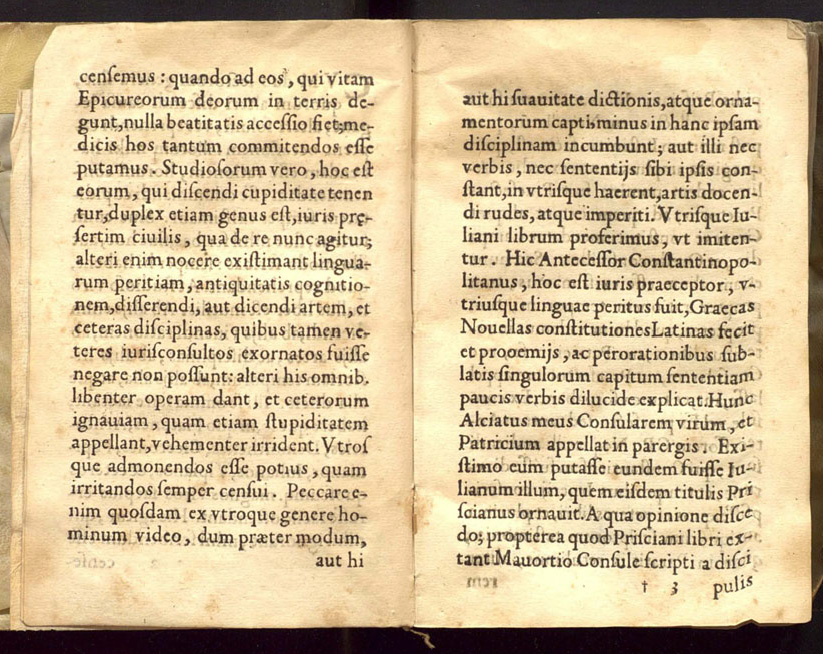 cenſemus : quando ad eos , qui vitam
Epicureorum deorum in terris de-
gunt,nulla beatitatis acceſſio fiet;me-
dicis hos tantum commitendos eſſe
putamus . Studioſorum vero , hoc eſt
eorum , qui diſcendi cupiditate tenen
tur,duplex etiam genus eſt,iuris prę-
ſertim ciuilis , qua de re nunc agitur;
alteri enim nocere exiſtimant lingua-
rum peritiam , antiquitatis cognitio-
nem,diſſerendi, aut dicendi artem, et
ceteras diſciplinas, quibus tamen ve-
teres iuriſconſultos exornatos fuiſſe
negare non poſſunt: alteri his omnib.
libenter operam dant , et ceterorum
ignauiam , quam etiam ſtupiditatem
appellant,vehementer irrident. Vtroſ
que admonendos eſſe potius , quam
irritandos ſemper cenſui . Peccare e-
nim quoſdam ex vtroque genere ho-
minum video , dum præter modum,
aut hi
aut hi ſuauitate dictionis,atque orna-
mentorum capti,minus in hanc ipſam
diſciplinam incumbunt ; aut illi nec
verbis , nec ſententijs ſibi ipſis con-
ſtant,in vtriſque haerent,artis docen-
di rudes, atque imperiti. Vtriſque Iu-
liani librum proferimus , vt imiten-
tur . Hic Anteceſſor Conſtantinopo-
litanus , hoc eſt iuris praeceptor , v-
triuſque linguae peritus fuit,Graecas
Nouellas conſtitutiones Latinas fecit
et prooemijs , ac perorationibus ſub-
latis ſingulorum capitum ſententiam
paucis verbis dilucide explicat.Hunc
Alciatus meus Conſularem virum , et
Patricium appellat in parergis . Exi-
ſtimo eum putaſſe eundem fuiſſe Iu-
lianum illum, quem eiſdem titulis Pri
ſcianus ornauit. A qua opinione diſce
do; propterea quod Priſciani libri ex-
tant Mauortio Conſule ſcripti a diſci
† 3 pulis